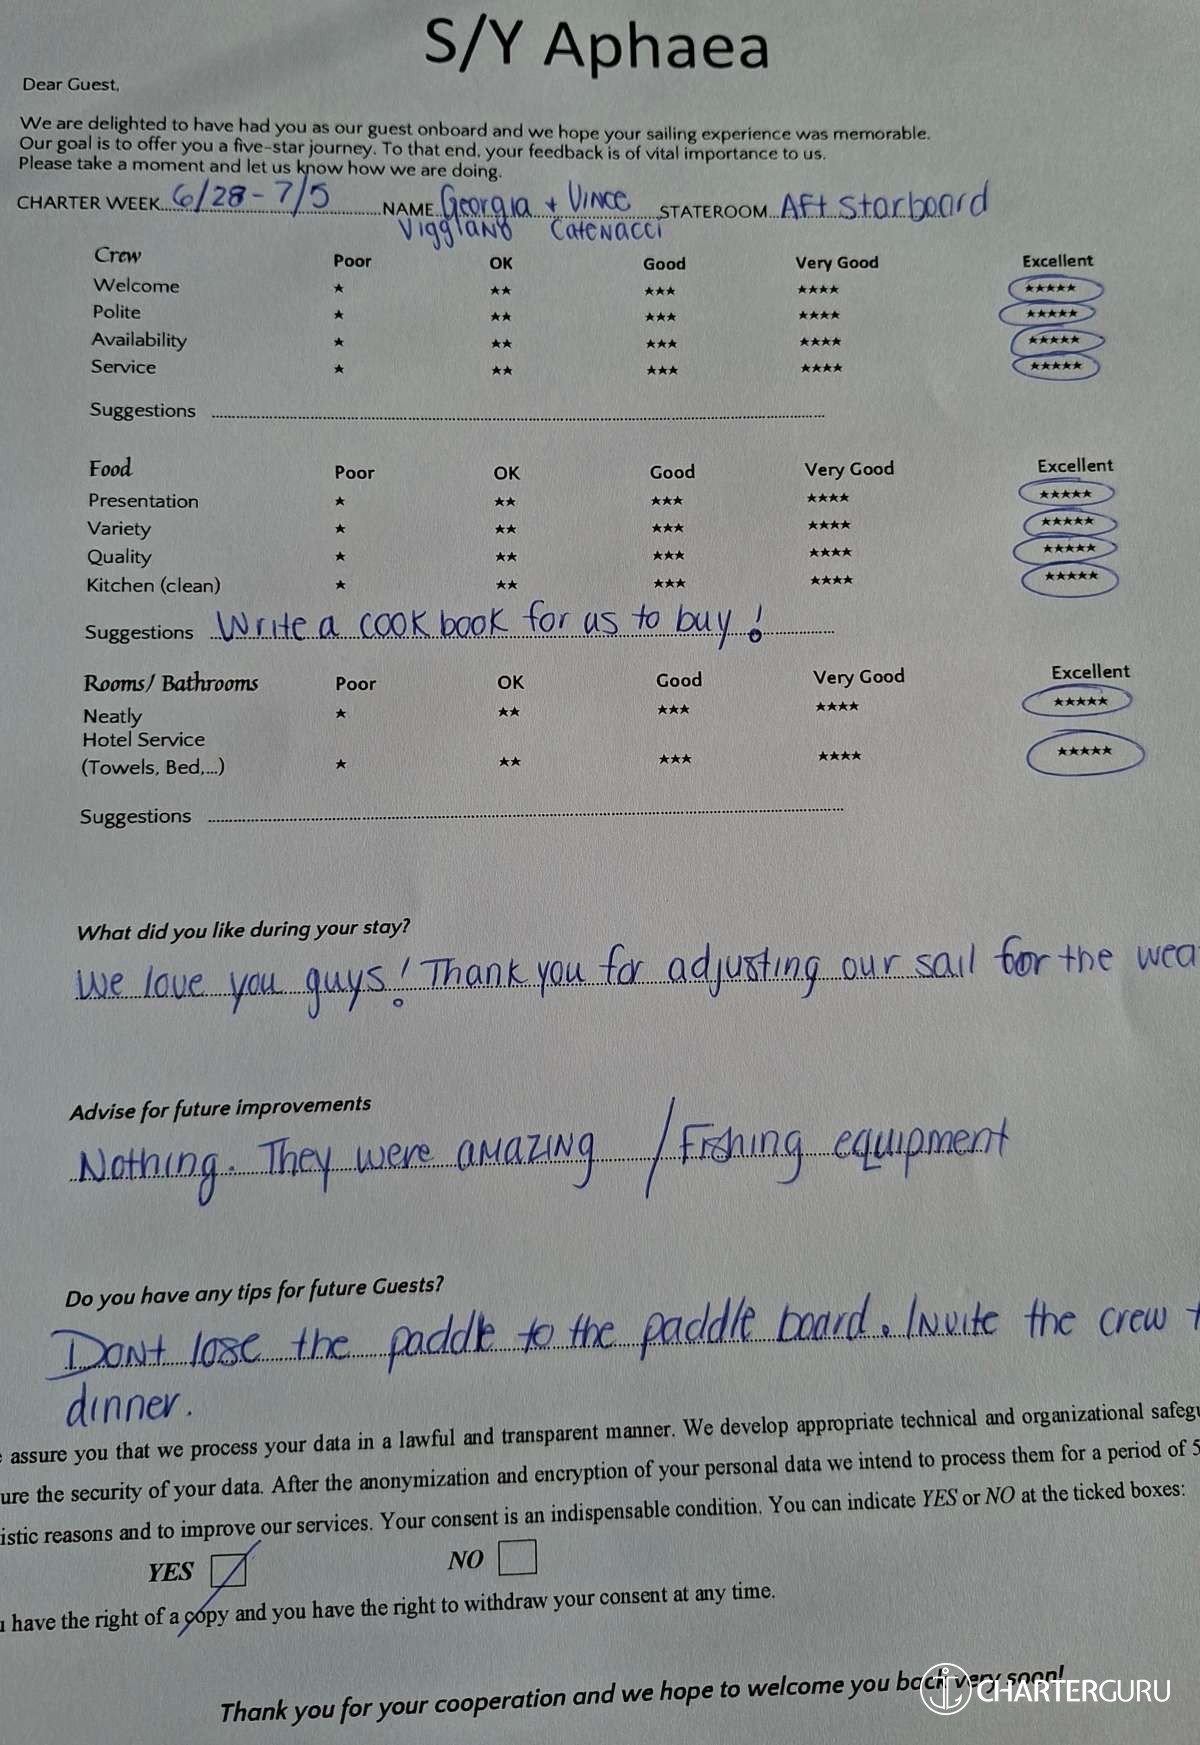 S/Y Aphaea
Dear Guest,
We are delighted to have had you as our guest onboard and we hope your sailing experience was memorable.
Our goal is to offer you a five-star journey. To that end, your feedback is of vital importance to us.
Please take a moment and let us know how we are doing.
CHARTER WEEK 6/28 - 7/5 NAME Georgia + Vince STATEROOM Aft starboard
Viggiano Catenacci
Crew Poor OK Good Very Good Excellent
Welcome ★ ★★ ★★★ ★★★★ ★★★★★
Polite ★ ★★ ★★★ ★★★★ ★★★★★
Availability ★ ★★ ★★★ ★★★★ ★★★★★
Service ★ ★★ ★★★ ★★★★ ★★★★★
Suggestions
Food Poor OK Good Very Good Excellent
Presentation ★ ★★ ★★★ ★★★★ ★★★★★
Variety ★ ★★ ★★★ ★★★★ ★★★★★
Quality ★ ★★ ★★★ ★★★★ ★★★★★
Kitchen (clean) ★ ★★ ★★★ ★★★★ ★★★★★
Suggestions Write a cook book for us to buy!
Rooms/ Bathrooms Poor OK Good Very Good Excellent
Neatly ★ ★★ ★★★ ★★★★ ★★★★★
Hotel Service
(Towels, Bed,...) ★ ★★ ★★★ ★★★★ ★★★★★
Suggestions
What did you like during your stay?
We love you guys! Thank you for adjusting our sail for the wea
Advise for future improvements
Nothing. They were amazing / Fishing equipment
Do you have any tips for future Guests?
Dont lose the paddle to the paddle board. Invite the crew t
dinner.
assure you that we process your data in a lawful and transparent manner. We develop appropriate technical and organizational safegu
ure the security of your data. After the anonymization and encryption of your personal data we intend to process them for a period of 5
istic reasons and to improve our services. Your consent is an indispensable condition. You can indicate YES or NO at the ticked boxes:
YES NO
u have the right of a copy and you have the right to withdraw your consent at any time.
Thank you for your cooperation and we hope to welcome you back very soon!
CHARTERGURU